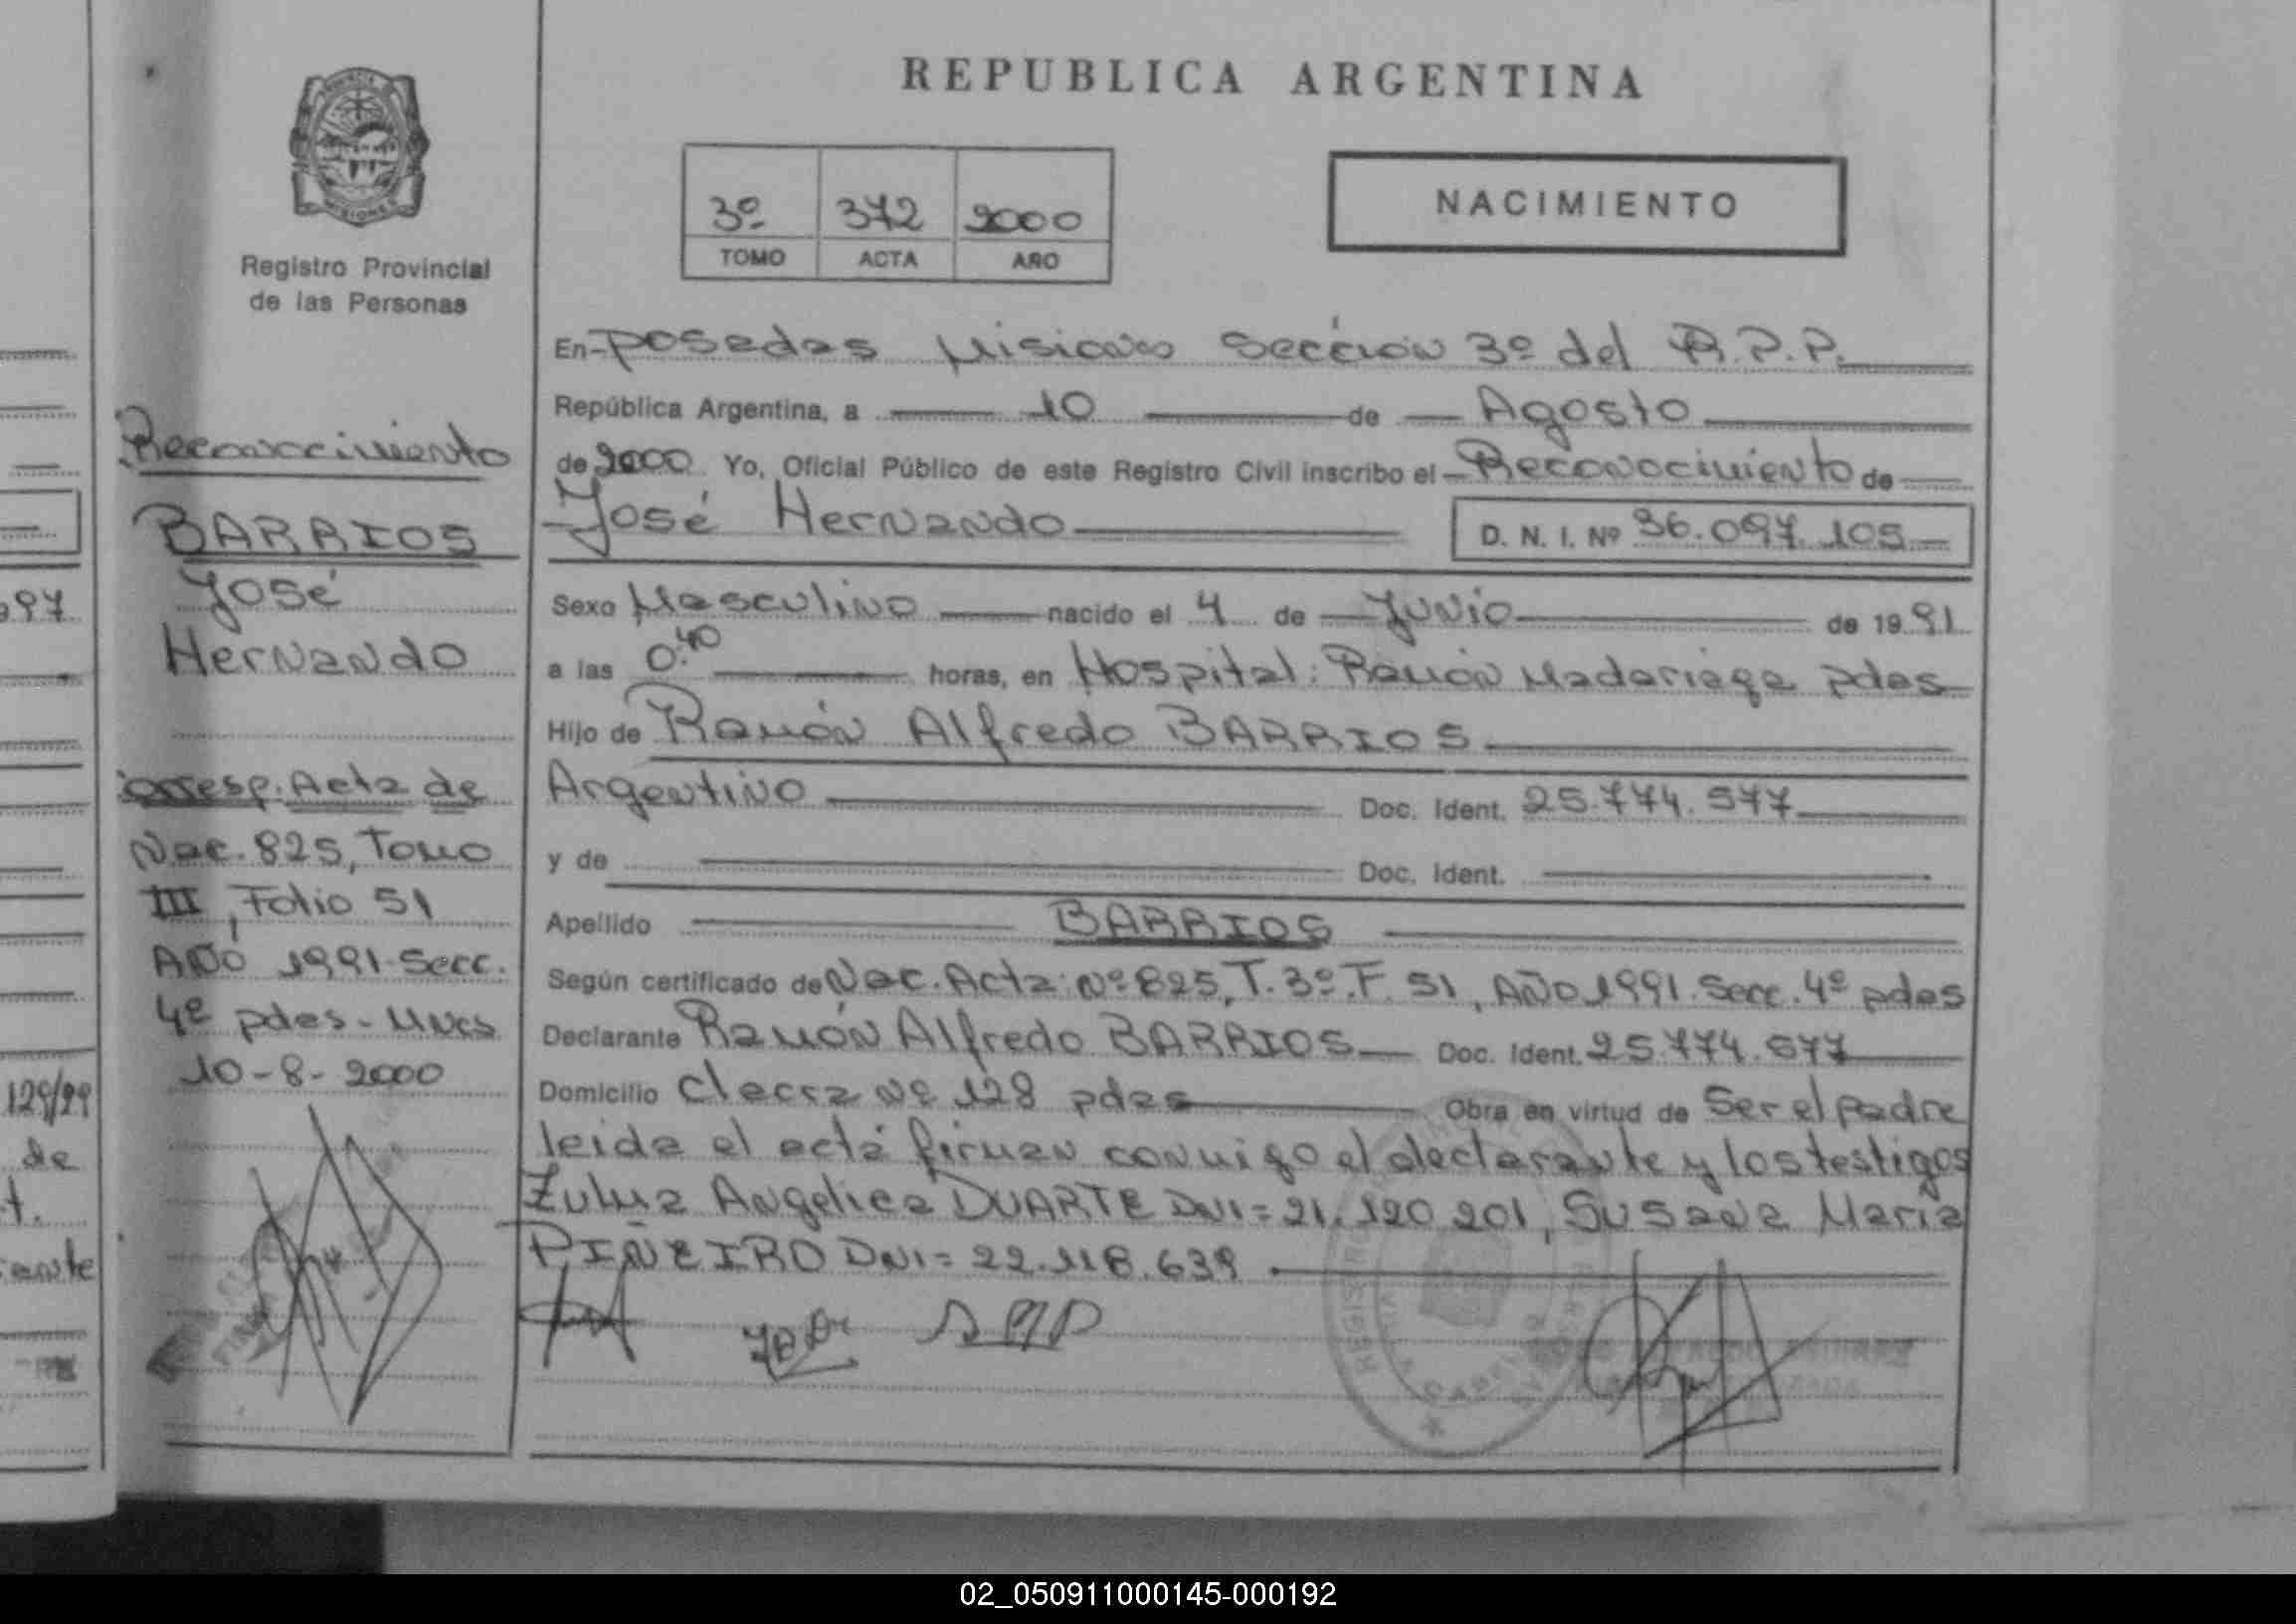 REPUBLICA ARGENTINA
PROVINCIA
MISIONES
Registro Provincial
de las Personas
3º 372 2000
TOMO ACTA AÑO
NACIMIENTO
Reconocimiento
BARRIOS
José
Hernando
Corresp. Acta de
Nac. 825, Tomo
III, Folio 51
AÑO 1991 Secc.
4º pdas - Mnes
10-8-2000
En Posadas Misiones Sección 3º del R.P.P.
República Argentina, a 10 de Agosto
de 2000 Yo, Oficial Público de este Registro Civil inscribo el Reconocimiento de
José Hernando D. N. I. Nº 36.097.105
Sexo Masculino nacido el 4 de Junio de 1991
a las 0:40 horas, en Hospital: Ramón Madariaga pdas
Hijo de Ramón Alfredo BARRIOS
Argentino Doc. Ident. 25.774.577
y de Doc. Ident.
Apellido BARRIOS
Según certificado de Nac. Acta: Nº 825, T. 3º. F. 51, AÑO 1991. Secc. 4º pdas
Declarante Ramón Alfredo BARRIOS Doc. Ident. 25.774.577
Domicilio Chacra Nº 128 pdas Obra en virtud de Ser el padre
leida el acta firman conmigo el declarante y los testigos
Zulma Angelica DUARTE DNI = 21.120.201, Susana Maria
PIÑEIRO DNI = 22.118.639
97
129/99
de
t.
ante
02_050911000145-000192